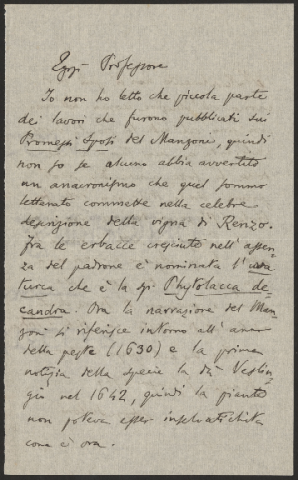 Egr. Professore
Io non ho letto che piccola parte
dei lavori che furono pubblicati sui
Promessi Sposi del Manzoni, quindi
non so se alcuno abbia avvertito
un anacronismo che quel sommo
letterato commette nella celebre
descrizione della vigna di Renzo.
Fra le erbacce cresciute nell'assen-
za del padrone è nominata l'uva
turca che è la sp. Phytolacca de-
candra. Ora la narrazione del Man-
zoni si riferisce intorno all'anno
della peste (1630) e la prima
notizia della specie la dà Veslin-
gio nel 1642, quindi la pianta
non poteva esser inselvatichita
come è ora.